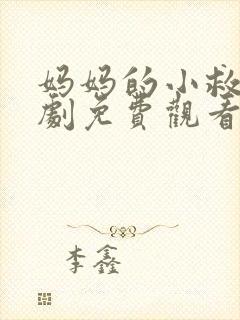 妈妈的小救
劇免費觀看
李鑫